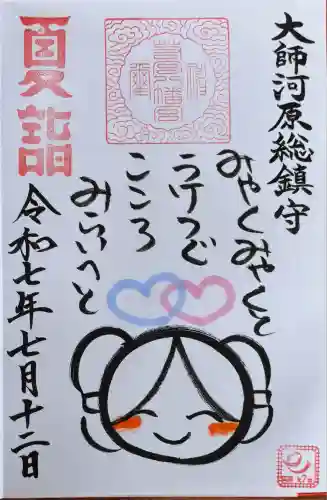 大師河原総鎮守
夏詣
みやくみやくと
うけつぐ
こころ
みらいへと
令和七年七月十二日